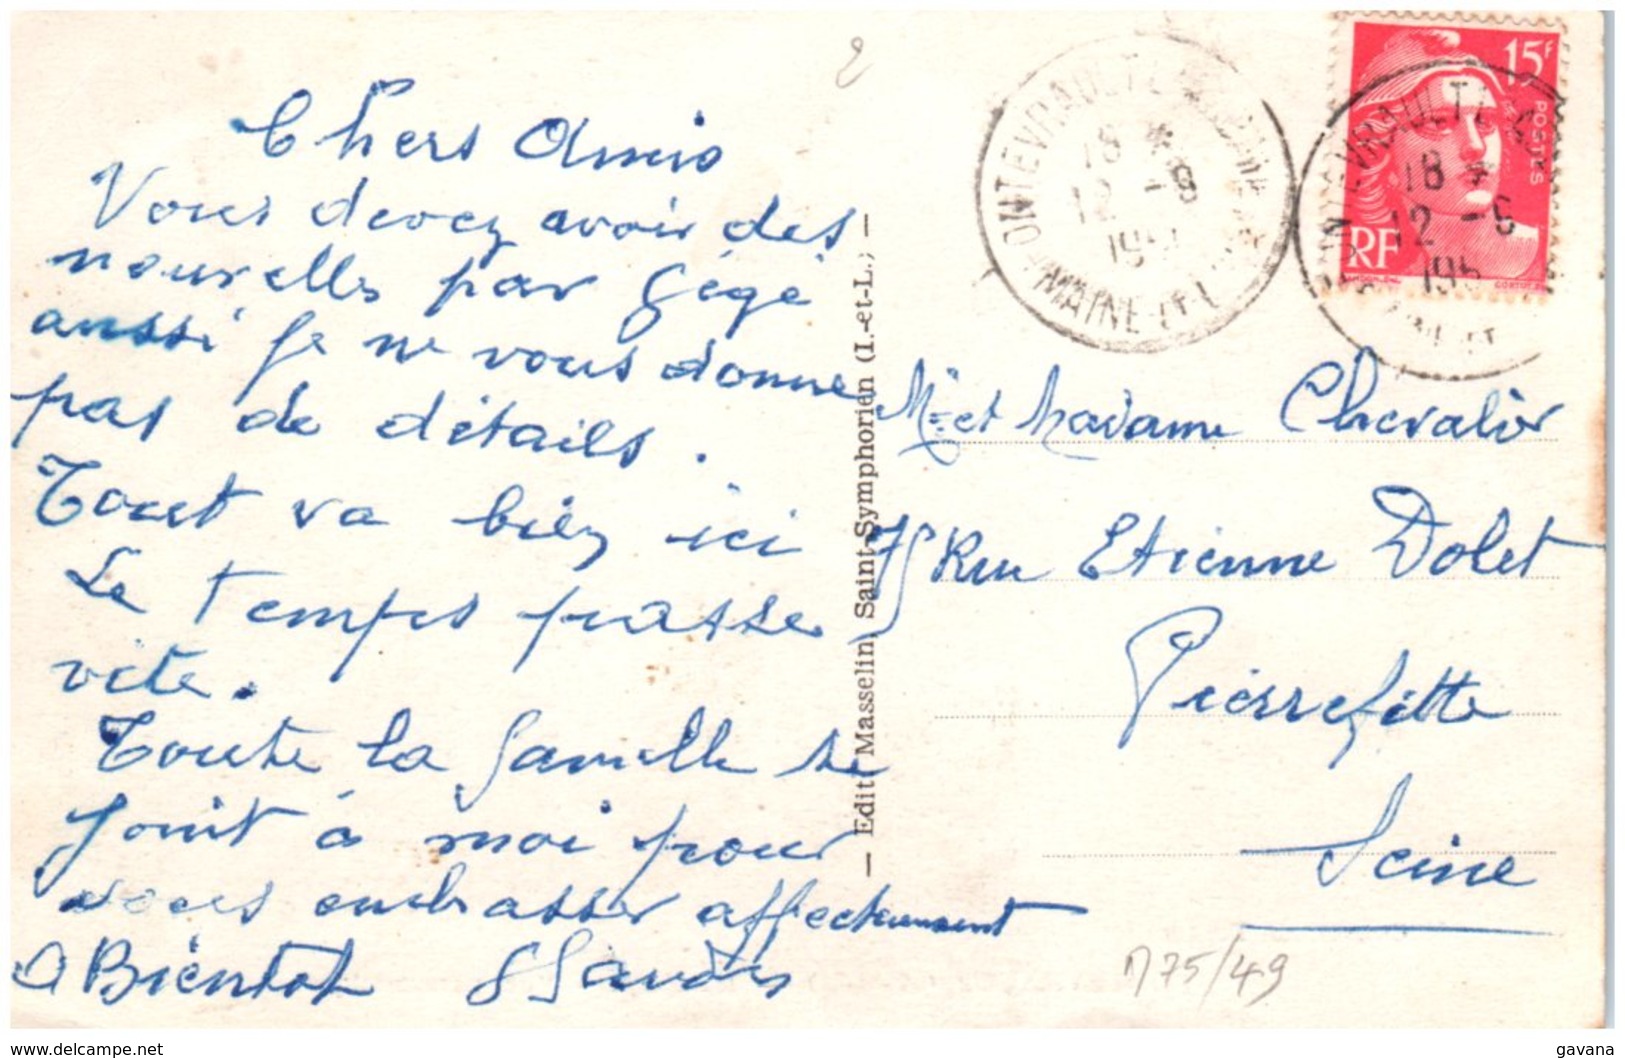 2
Chers Amis
Vous devez avoir des
nouvelles par Gégé
aussi je ne vous donne
pas de détails.
Tout va bien ici
Le temps passe
vite.
Toute la famille se
joint à moi pour
vous embrasser affectueusement
A Bientot
— Edit. Masselin, Saint-Symphorien (I.-et-L.) —
FONTEVRAULT L'
18 *
12 -6
195
MAINE-ET-L
15F
POSTES
RF
VRAULT L
18 *
12 -6
195
Mr et Madame Chevalier
75 Rue Etienne Dolet
Pierrefitte
Seine
75/49
www.delcampe.net
gavana